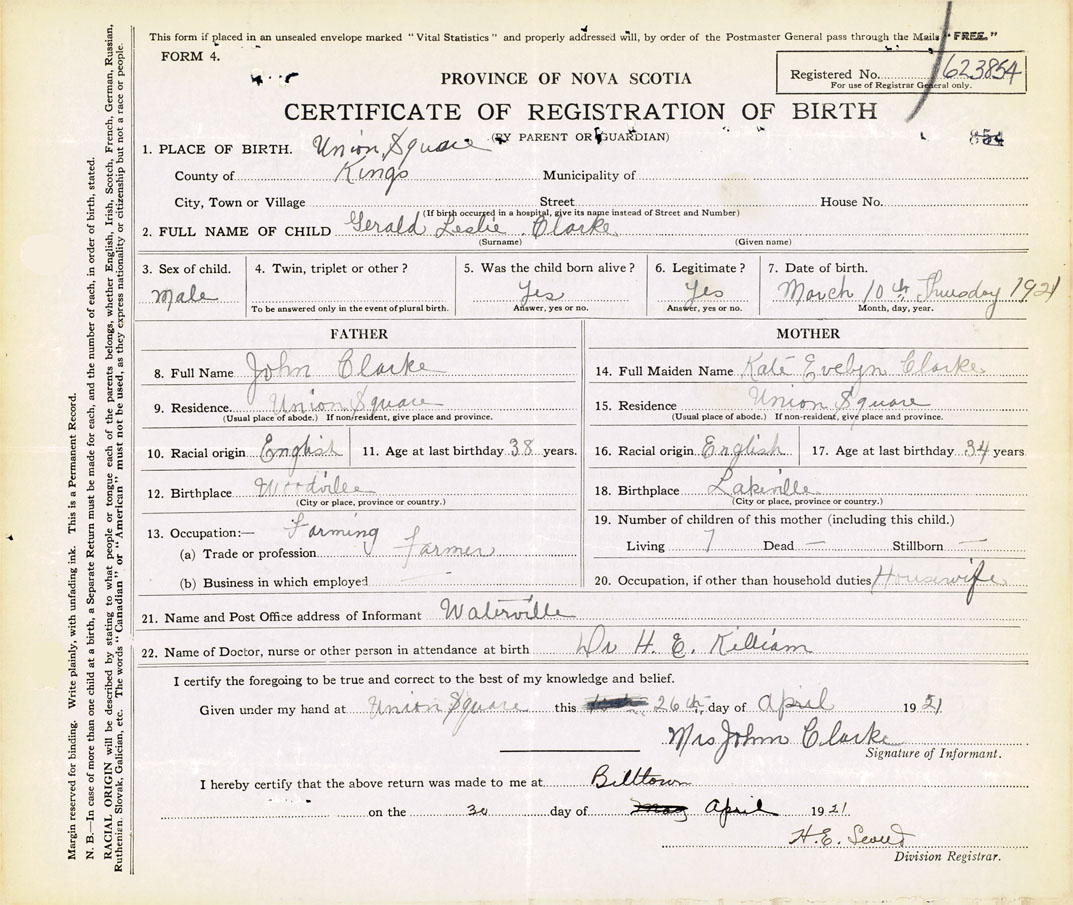 This form if placed in an unsealed envelope marked "Vital Statistics" and properly addressed will, by order of the Postmaster General pass through the Mails "FREE."
FORM 4.
Registered No. 623854
For use of Registrar General only.
PROVINCE OF NOVA SCOTIA
CERTIFICATE OF REGISTRATION OF BIRTH
(BY PARENT OR GUARDIAN)
854
1. PLACE OF BIRTH. Union Square
County of Kings Municipality of
City, Town or Village Street House No.
(If birth occurred in a hospital, give its name instead of Street and Number)
2. FULL NAME OF CHILD Gerald Leslie Clarke
(Surname) (Given name)
3. Sex of child. 4. Twin, triplet or other? 5. Was the child born alive? 6. Legitimate? 7. Date of birth.
Male Yes Yes March 10th Thursday 1921
To be answered only in the event of plural birth. Answer, yes or no. Answer, yes or no. Month, day, year.
FATHER
8. Full Name John Clarke
9. Residence. Union Square
(Usual place of abode.) If non-resident, give place and province.
10. Racial origin English 11. Age at last birthday 38 years.
12. Birthplace Woodville
(City or place, province or country.)
13. Occupation:— Farming
(a) Trade or profession farmer
(b) Business in which employed —
MOTHER
14. Full Maiden Name Kate Evelyn Clarke
15. Residence Union Square
(Usual place of abode.) If non-resident, give place and province.
16. Racial origin English 17. Age at last birthday 34 years
18. Birthplace Lakeville
(City or place, province or country.)
19. Number of children of this mother (including this child.)
Living 7 Dead — Stillborn —
20. Occupation, if other than household duties Housewife
21. Name and Post Office address of Informant Waterville
22. Name of Doctor, nurse or other person in attendance at birth Dr H. E. Killiam
I certify the foregoing to be true and correct to the best of my knowledge and belief.
Given under my hand at Union Square this 26th day of April 1921
Mrs John Clarke
Signature of Informant.
I hereby certify that the above return was made to me at Billtown
on the 30 day of May April 1921
H. E.
Division Registrar.
Margin reserved for binding. Write plainly, with unfading ink. This is a Permanent Record.
N. B.—In case of more than one child at a birth, a Separate Return must be made for each, and the number of each, in order of birth, stated.
RACIAL ORIGIN will be described by stating to what people or tongue each of the parents belongs, whether English, Irish, Scotch, French, German, Russian,
Ruthenian, Slovak, Galician, etc. The words "Canadian" or "American" must not be used, as they express nationality or citizenship but not a race or people.